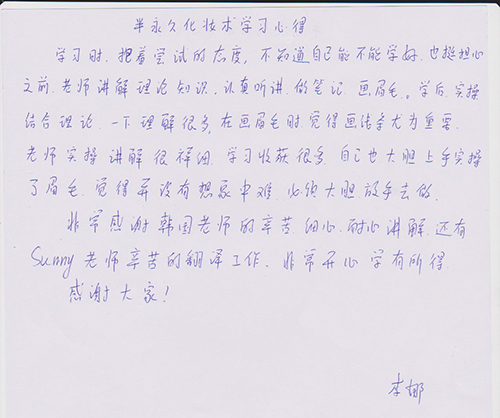 半永久化妆术学习心得
学习时.抱着尝试的态度,不知道自己能不能学好.也挺担心
之前.老师讲解理论知识.认真听讲.做笔记.画眉毛。学后.实操
结合理论.一下理解很多,在画眉毛时.觉得画法拿大为重要.
老师实操讲解很祥细.学习收获很多.自己也大胆上手实操
了眉毛.觉得并没有想象中难.必须大胆放手去做.
非常感谢韩国老师的辛苦细心.耐心讲解还有
Sunny老师辛苦的翻译工作.非常开心学有所得
感谢大家!
李娜